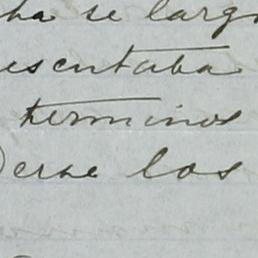 ha se larg
esentaba
terminos
los